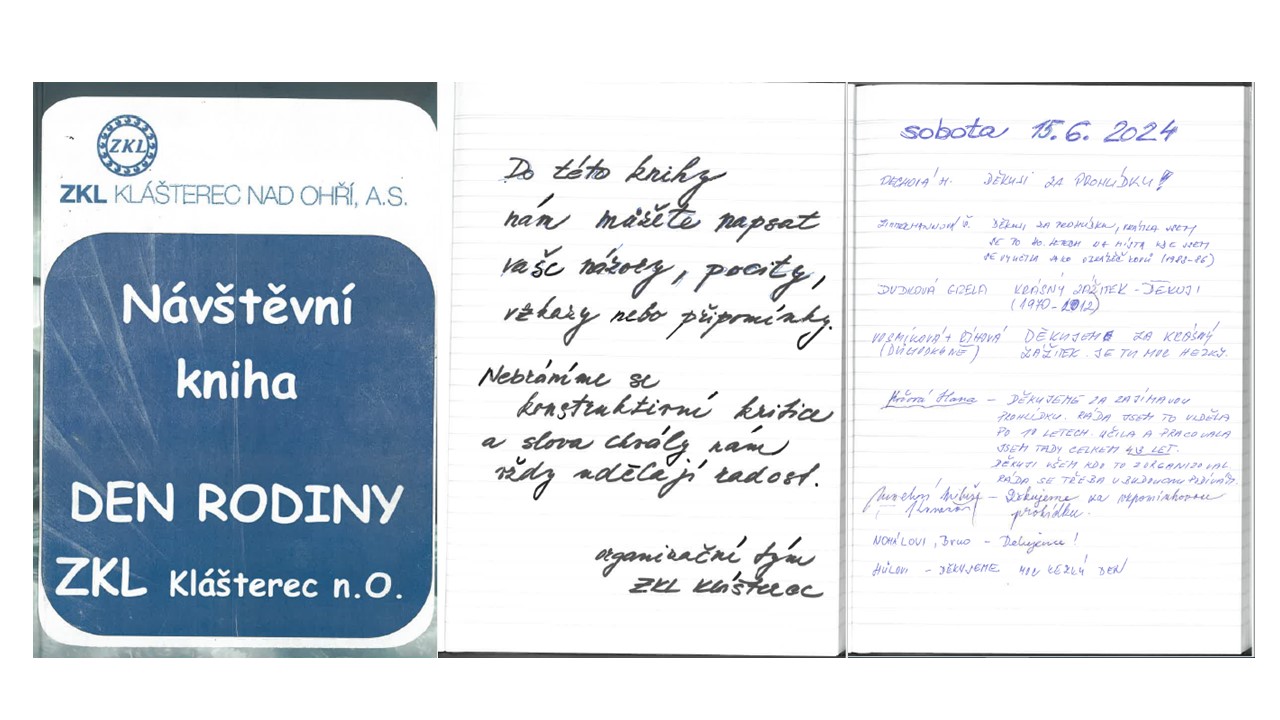 ZKL
ZKL KLÁŠTEREC NAD OHŘÍ, A.S.
Návštěvní
kniha
DEN RODINY
ZKL Klášterec n.O.
Do této knihy
nám můžete napsat
vaše názory, pocity,
vzkazy nebo připomínky.
Nebráníme se
konstruktivní kritice
a slova chvály nám
vždy udělají radost.
organizační tým
ZKL Klášterec
sobota 15.6. 2024
DĚKUJI ZA PROHLÍDKU!
DĚKUJI ZA PROHLÍDKU, VRÁTILA JSEM
SE PO 40 LETECH NA MÍSTA KDE JSEM
SE VYUČILA JAKO
DUDKOVÁ GIZELA KRÁSNÝ ZÁŽITEK - DĚKUJI
(1970-2012)
DĚKUJEME ZA KRÁSNÝ
(DŮCHODKYNĚ) ZÁŽITEK. JE TU MOC HEZKY.
Hana - DĚKUJEME ZA ZAJÍMAVOU
PROHLÍDKU. RÁDA JSEM TO VIDĚLA
PO 10 LETECH. UČILA A PRACOVALA
JSEM TADY CELKEM 43 LET.
DĚKUJI VŠEM KDO TO ZORGANIZOVAL.
RÁDA SE TŘEBA V BUDOUCNU PODÍVÁM.
- Děkujeme za
prohlídku.
NOHÁLOVI, Brno - Děkujeme!
HŮLOVI - DĚKUJEME MOC HEZKÝ DEN